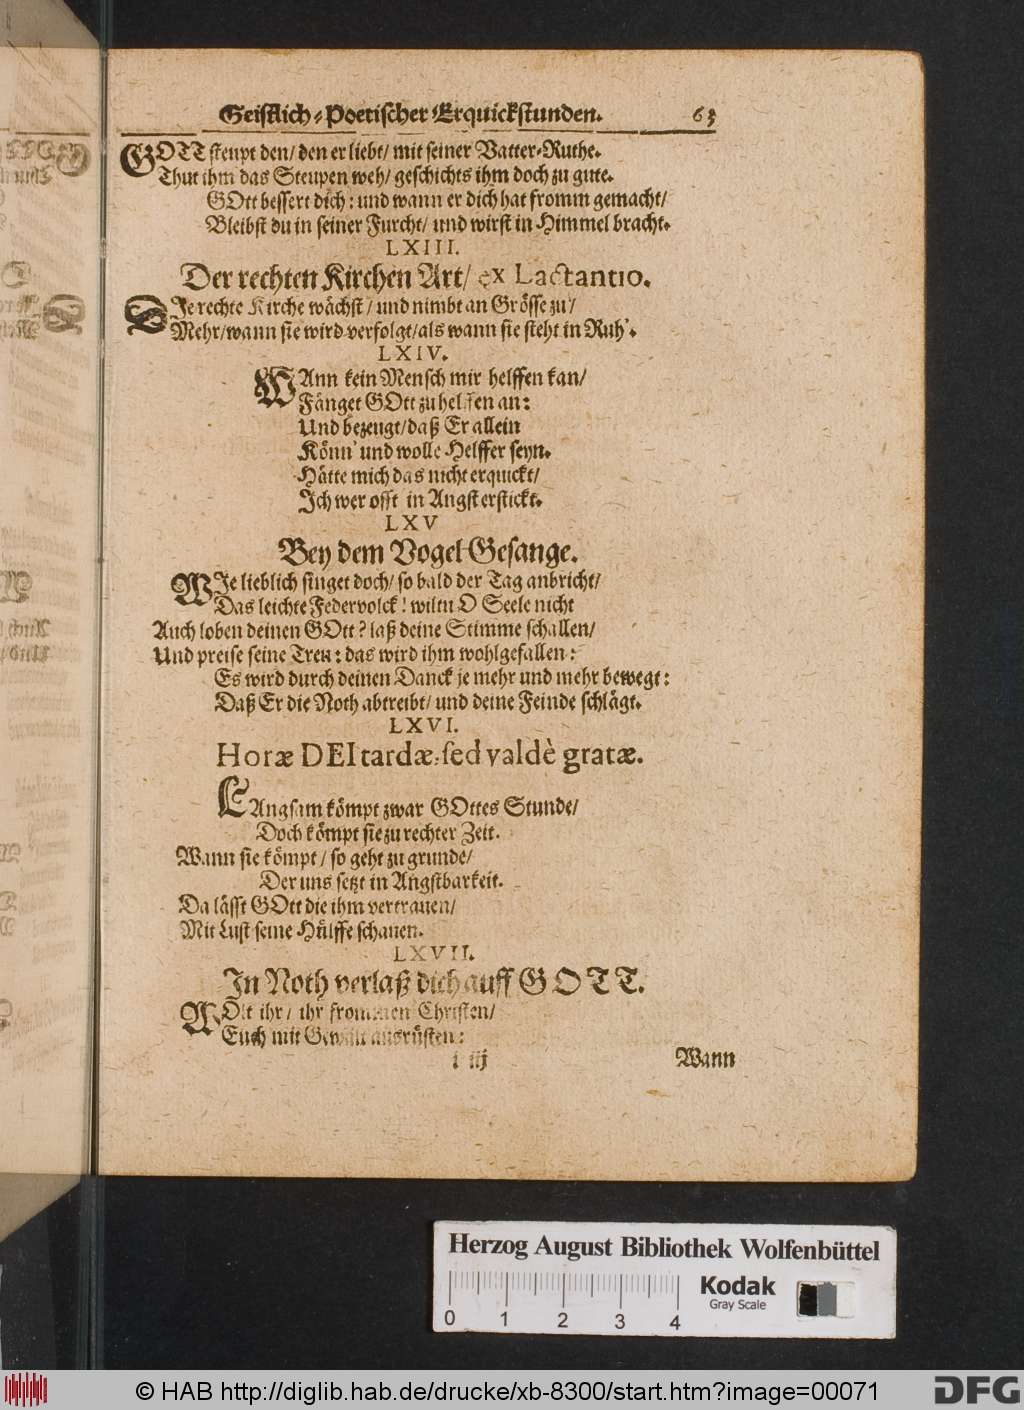 Geistlich-Poetischer Erquickstunden. 63
GOTT steupt den/ den er liebt/ mit seiner Vatter-Ruthe.
Thut ihm das Steupen weh/ geschichts ihm doch zu gute.
GOtt bessert dich: und wann er dich hat fromm gemacht/
Bleibst du in seiner Furcht/ und wirst in Himmel bracht.
LXIII.
Der rechten Kirchen Art/ ex Lactantio.
DJe rechte Kirche wächst/ und nimbt an Grösse zu/
Mehr/ wann sie wird verfolgt/ als wann sie steht in Ruh'.
LXIV.
WAnn kein Mensch mir helffen kan/
Fänget GOtt zu helffen an:
Und bezeugt/ daß Er allein
Könn' und wolle Helffer seyn.
Hätte mich das nicht erquickt/
Jch wer offt in Angst erstickt.
LXV
Bey dem Vogel-Gesange.
WJe lieblich singet doch/ so bald der Tag anbricht/
Das leichte Federvolck! wiltu O Seele nicht
Auch loben deinen GOtt? laß deine Stimme schallen/
Und preise seine Treu: das wird ihm wohlgefallen:
Es wird durch deinen Danck je mehr und mehr bewegt:
Daß Er die Noth abtreibt/ und deine Feinde schlägt.
LXVI.
Horæ DEI tardæ: sed valdè gratæ.
LAngsam kömpt zwar GOttes Stunde/
Doch kömpt sie zu rechter Zeit.
Wann sie kömpt/ so geht zu grunde/
Der uns setzt in Angstbarkeit.
Da lässt GOtt die ihm vertrauen/
Mit Lust seine Hülffe schauen.
LXVII.
Jn Noth verlaß dich auff GOTT.
WOlt ihr/ ihr frommen Christen/
Euch mit Gewalt ausrüsten:
i iij Wann
Herzog August Bibliothek Wolfenbüttel
Kodak
Gray Scale
0 1 2 3 4
© HAB http://diglib.hab.de/drucke/xb-8300/start.htm?image=00071
DFG